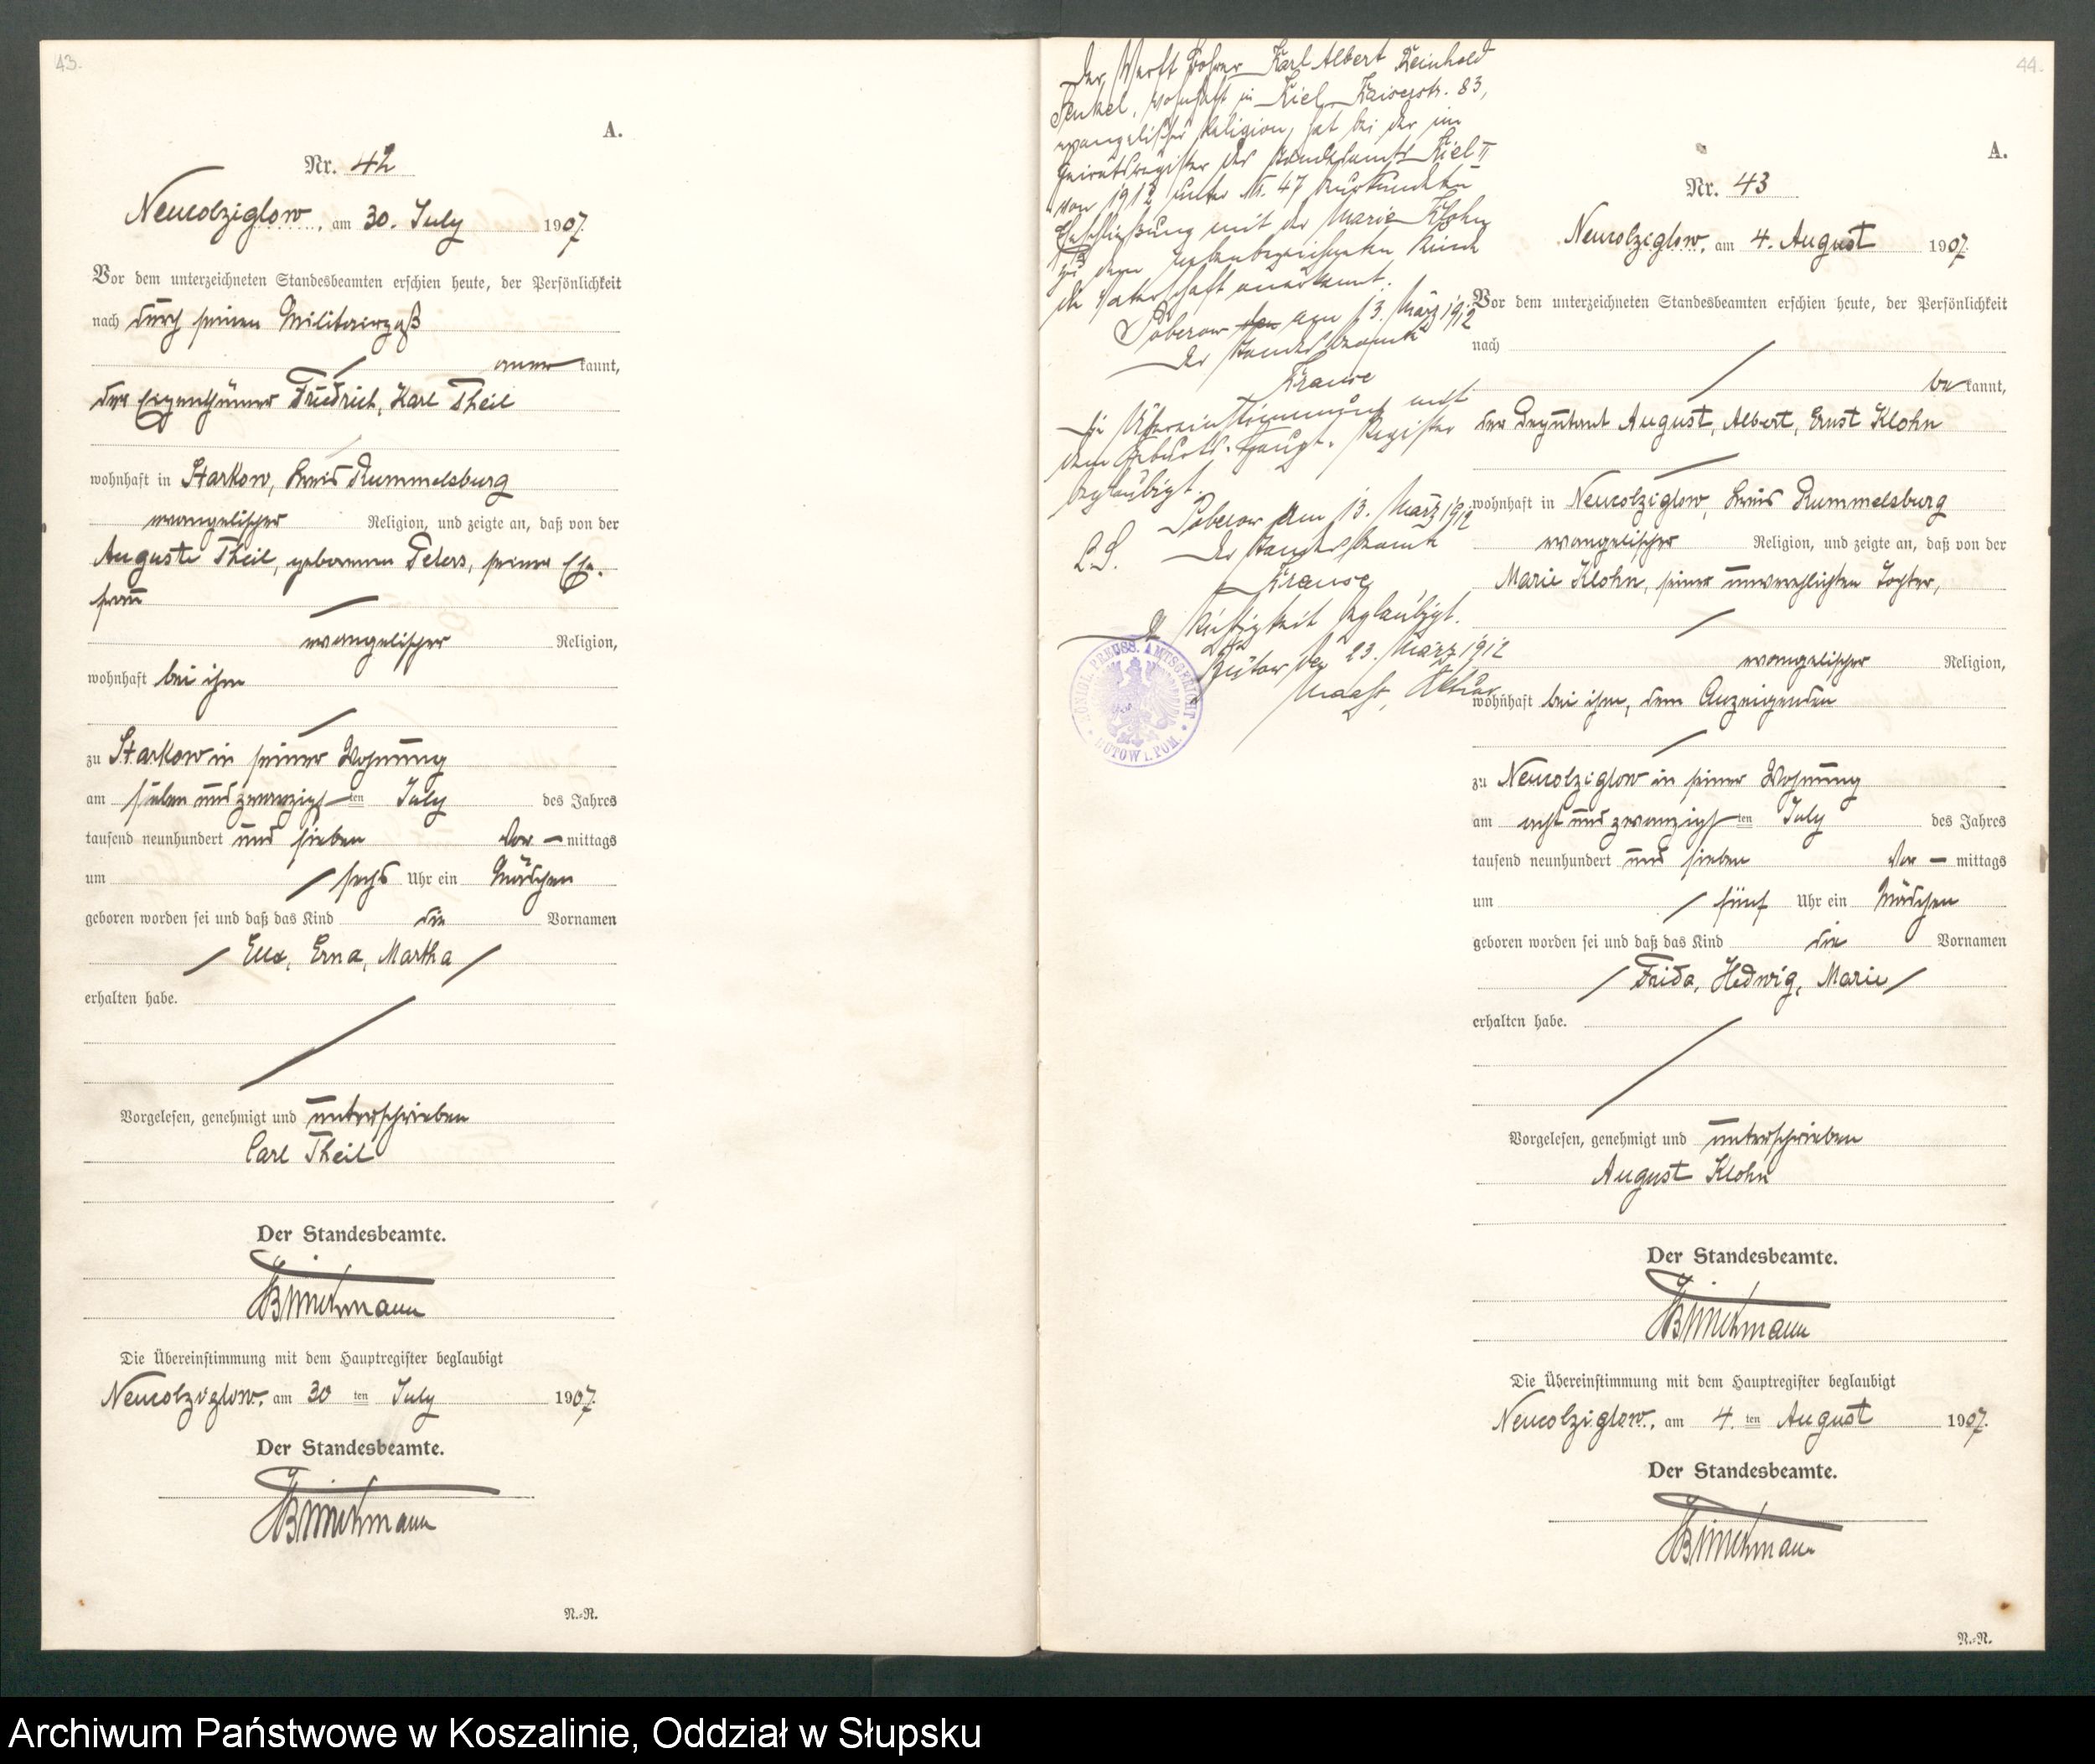 43.
A.
Nr. 42
Neucolziglow, am 30. July 1907.
Vor dem unterzeichneten Standesbeamten erschien heute, der Persönlichkeit
nach durch seinen Militairpaß
aner kannt,
der Eigenthümer Friedrich, Karl Theil
wohnhaft in Starkow, Kreis Rummelsburg
evangelischer Religion, und zeigte an, daß von der
Auguste Theil, geborenen Peters, seiner Ehe-
frau
evangelischer Religion,
wohnhaft bei ihm
zu Starkow in seiner Wohnung
am sieben und zwanzigsten July des Jahres
tausend neunhundert und sieben Vor-mittags
um sechs Uhr ein Mädchen
geboren worden sei und daß das Kind die Vornamen
Erna, Martha
erhalten habe.
Vorgelesen, genehmigt und unterschrieben
Carl Theil
Der Standesbeamte.
Die Übereinstimmung mit dem Hauptregister beglaubigt
Neucolziglow, am 30 ten July 1907.
Der Standesbeamte.
N.-R.
44.
Der Werft Karl Albert Reinhold
wohnhaft in Kiel, Kaiserstr. 83,
evangelischer Religion, hat bei der im
Heiratsregister des Standesamts Kiel II
von 1912 unter Nr. 47 beurkundeten
Eheschließung mit der Marie Klohn
zu dem nebenbezeichneten Kinde
die Vaterschaft anerkannt.
am 13. März 1912
Der Standesbeamte
Krause
Die Übereinstimmung mit
dem Geburts-Haupt-Register
beglaubigt.
am 13. März 1912
L.S. Der Standesbeamte
Krause
Die Richtigkeit beglaubigt.
Bütow den 23. März 1912
KÖNIGL. PREUSS. AMTSGERICHT
BÜTOW i. POM.
A.
Nr. 43
Neucolziglow, am 4. August 1907.
Vor dem unterzeichneten Standesbeamten erschien heute, der Persönlichkeit
nach
be kannt,
der Deputant August, Albert, Ernst Klohn
wohnhaft in Neucolziglow, Kreis Rummelsburg
evangelischer Religion, und zeigte an, daß von der
Marie Klohn, seiner unverehelichten Tochter,
evangelischer Religion,
wohnhaft bei ihm, dem Anzeigenden
zu Neucolziglow in seiner Wohnung
am acht und zwanzigsten July des Jahres
tausend neunhundert und sieben Vor-mittags
um fünf Uhr ein Mädchen
geboren worden sei und daß das Kind die Vornamen
Frida, Hedwig, Marie
erhalten habe.
Vorgelesen, genehmigt und unterschrieben
August Klohn
Der Standesbeamte.
Die Übereinstimmung mit dem Hauptregister beglaubigt
Neucolziglow, am 4. ten August 1907.
Der Standesbeamte.
N.-R.
Archiwum Państwowe w Koszalinie, Oddział w Słupsku